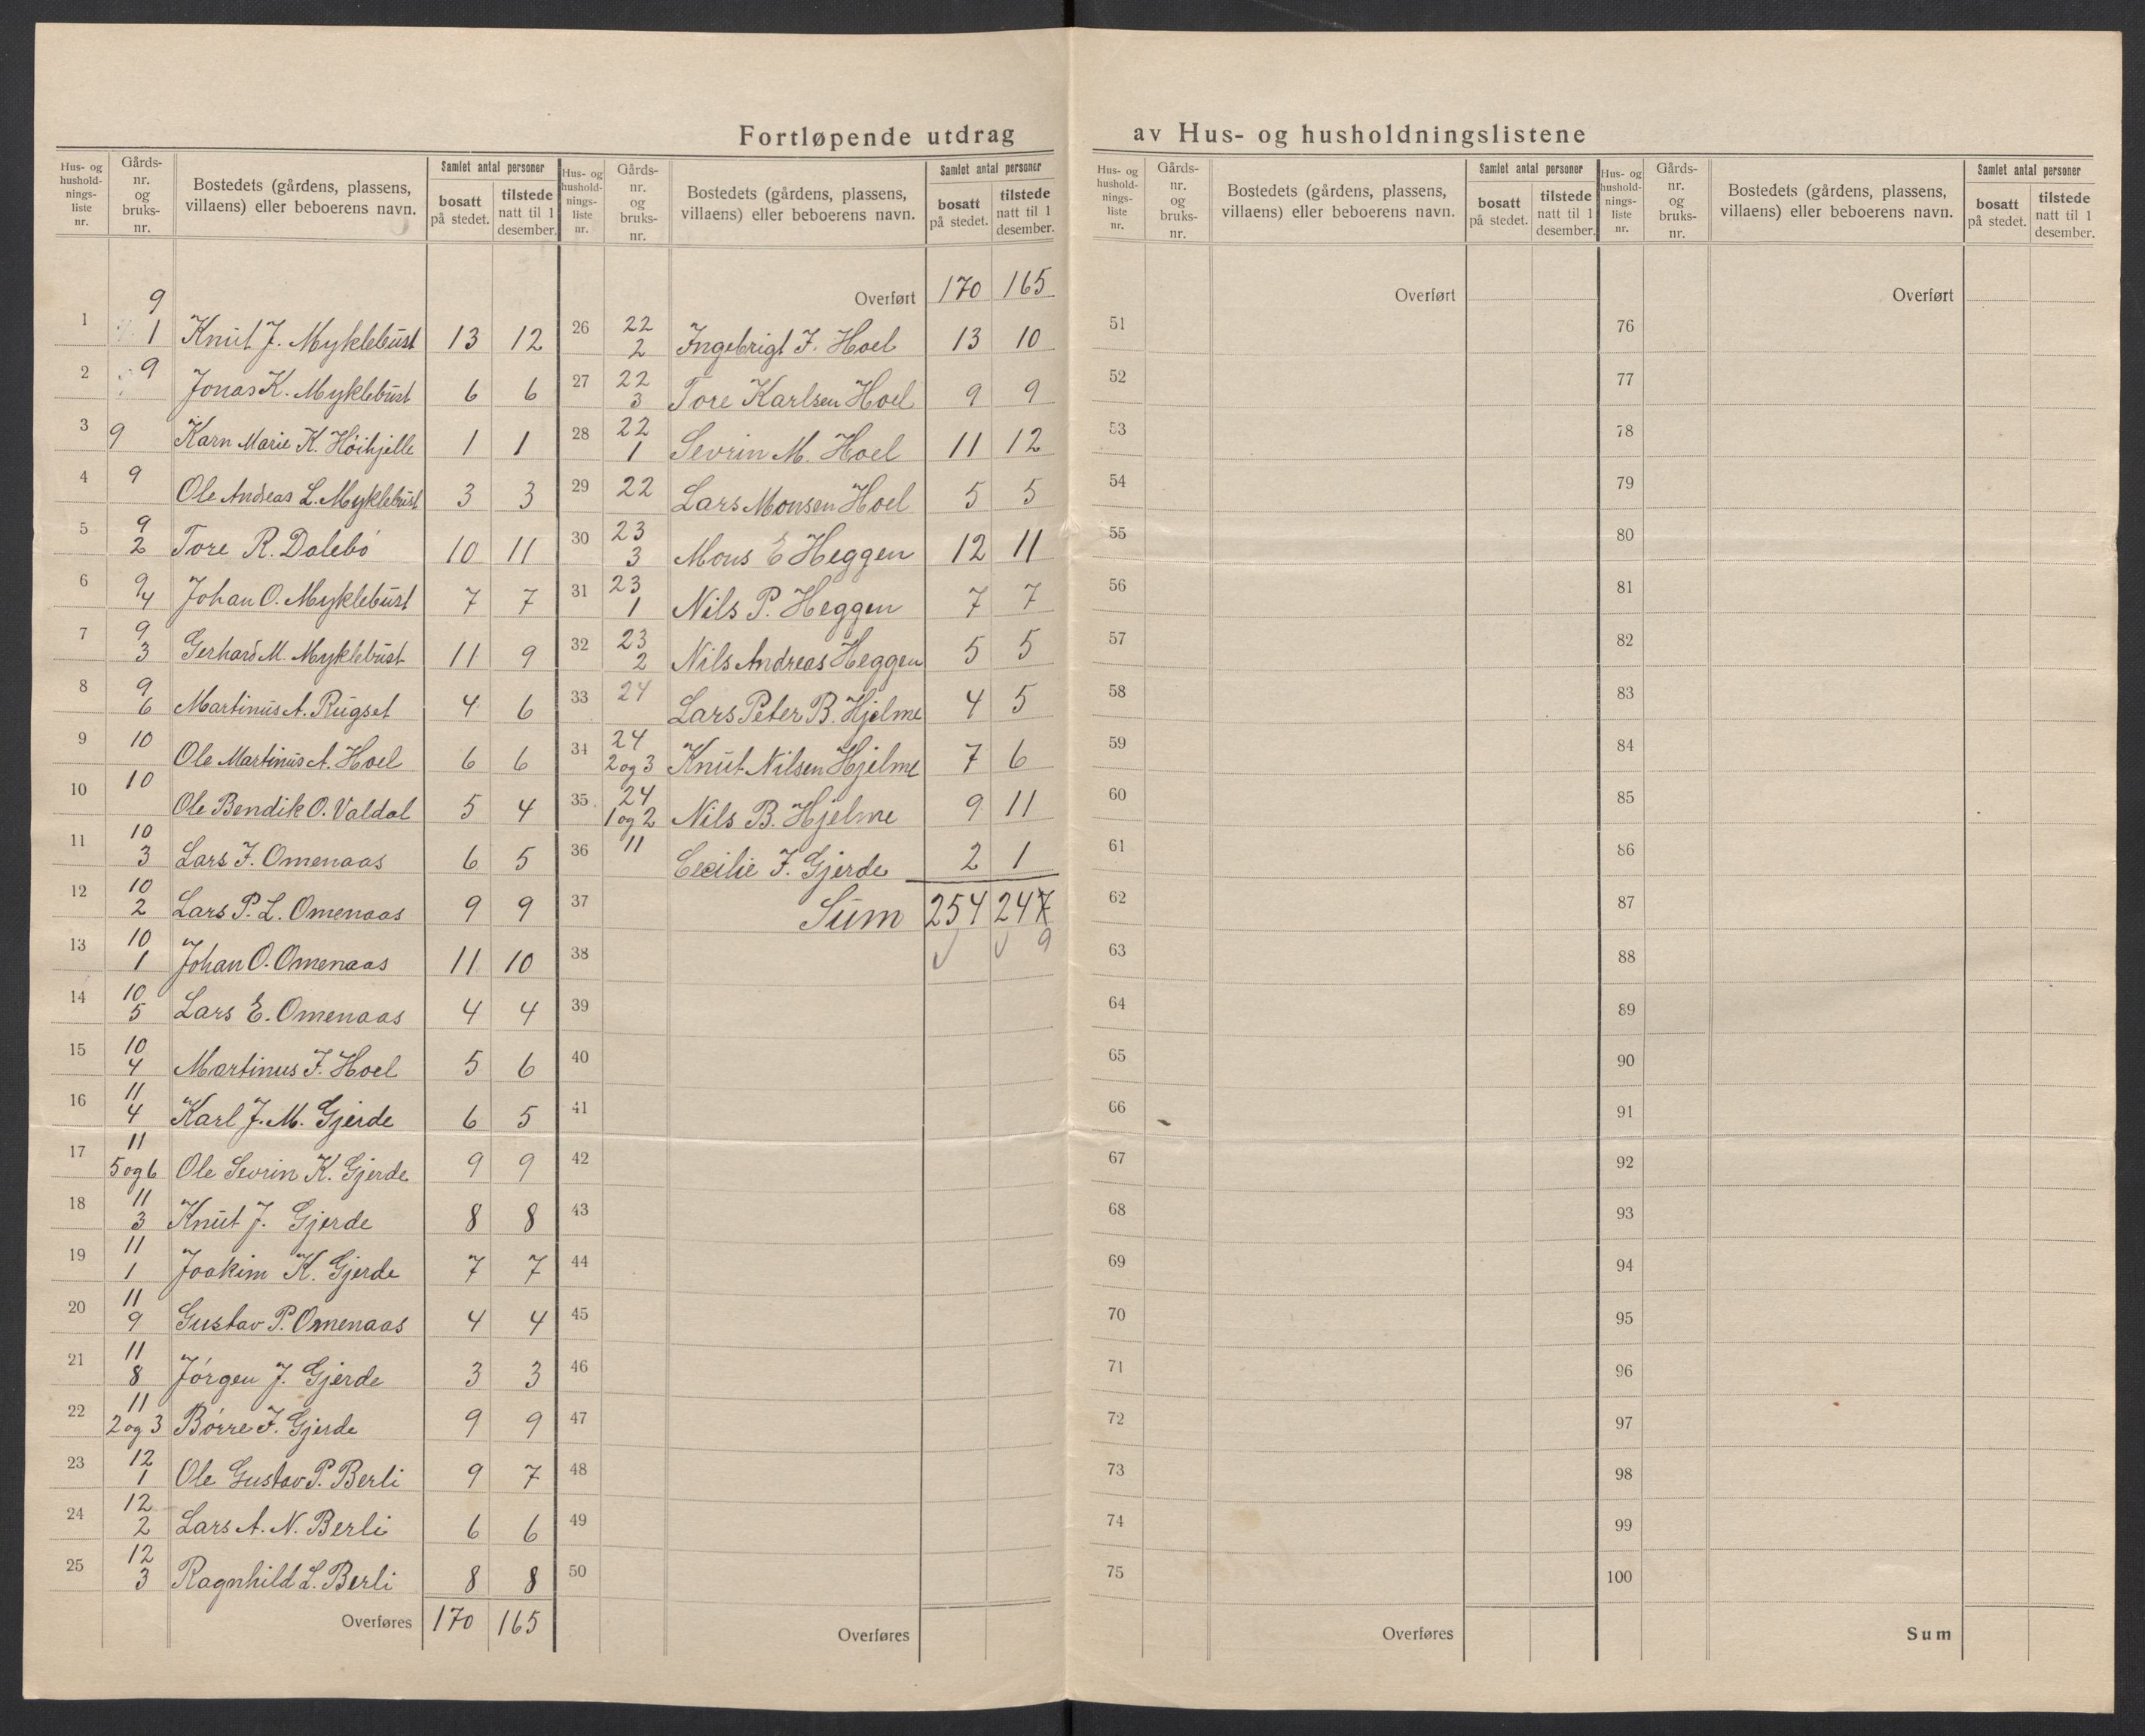 Fortløpende utdrag av Hus- og husholdningslistene
Hus- og husholdnings-liste nr. | Gårds-nr. og bruks-nr. | Bostedets (gårdens, plassens, villaens) eller beboerens navn. | Samlet antal personer | bosatt på stedet. | tilstede natt til 1 desember.
1 | 9 1 | Knut J. Myklebust | 13 | 12
2 | 9 | Jonas K. Myklebust | 6 | 6
3 | 9 | Karn Marie K. Høihjelle | 1 | 1
4 | 9 | Ole Andreas L. Myklebust | 3 | 3
5 | 9 2 | Tore R. Dalebö | 10 | 11
6 | 9 4 | Johan O. Myklebust | 7 | 7
7 | 9 3 | Gerhard M. Myklebust | 11 | 9
8 | 9 6 | Martinus A. Rugset | 4 | 6
9 | 10 | Ole Martinus A. Hoel | 6 | 6
10 | 10 | Ole Bendik O. Valdal | 5 | 4
11 | 10 3 | Lars J. Omenaas | 6 | 5
12 | 10 2 | Lars P. L. Omenaas | 9 | 9
13 | 10 1 | Johan O. Omenaas | 11 | 10
14 | 10 5 | Lars E. Omenaas | 4 | 4
15 | 10 4 | Martinus J. Hoel | 5 | 6
16 | 11 4 | Karl J. M. Gjerde | 6 | 5
17 | 11 5 og 6 | Ole Sevrin K. Gjerde | 9 | 9
18 | 11 3 | Knut J. Gjerde | 8 | 8
19 | 11 1 | Joakim K. Gjerde | 7 | 7
20 | 11 9 | Gustav P. Omenaas | 4 | 4
21 | 11 8 | Jörgen J. Gjerde | 3 | 3
22 | 11 2 og 3 | Börre J. Gjerde | 9 | 9
23 | 12 1 | Ole Gustav P. Berli | 9 | 7
24 | 12 2 | Lars A. N. Berli | 6 | 6
25 | 12 3 | Ragnhild L. Berli | 8 | 8
Overføres | 170 | 165
Hus- og husholdnings-liste nr. | Gårds-nr. og bruks-nr. | Bostedets (gårdens, plassens, villaens) eller beboerens navn. | Samlet antal personer | bosatt på stedet. | tilstede natt til 1 desember.
Overført | 170 | 165
26 | 22 2 | Ingebrigt J. Hoel | 13 | 10
27 | 22 3 | Tore Karlsen Hoel | 9 | 9
28 | 22 1 | Sevrin M. Hoel | 11 | 12
29 | 22 | Lars Monsen Hoel | 5 | 5
30 | 23 3 | Mons E Heggen | 12 | 11
31 | 23 1 | Nils P. Heggen | 7 | 7
32 | 23 2 | Nils Andreas Heggen | 5 | 5
33 | 24 | Lars Peter B. Hjelme | 4 | 5
34 | 24 2 og 3 | Knut Nilsen Hjelme | 7 | 6
35 | 24 1 og 2 | Nils B. Hjelme | 9 | 11
36 | 11 | Cecilie J. Gjerde | 2 | 1
37 | Sum | 254 | 247
38 | 9
39
40
41
42
43
44
45
46
47
48
49
50
Overføres
Hus- og husholdnings-liste nr. | Gårds-nr. og bruks-nr. | Bostedets (gårdens, plassens, villaens) eller beboerens navn. | Samlet antal personer | bosatt på stedet. | tilstede natt til 1 desember.
Overført
51
52
53
54
55
56
57
58
59
60
61
62
63
64
65
66
67
68
69
70
71
72
73
74
75
Overføres
Hus- og husholdnings-liste nr. | Gårds-nr. og bruks-nr. | Bostedets (gårdens, plassens, villaens) eller beboerens navn. | Samlet antal personer | bosatt på stedet. | tilstede natt til 1 desember.
Overført
76
77
78
79
80
81
82
83
84
85
86
87
88
89
90
91
92
93
94
95
96
97
98
99
100
Sum